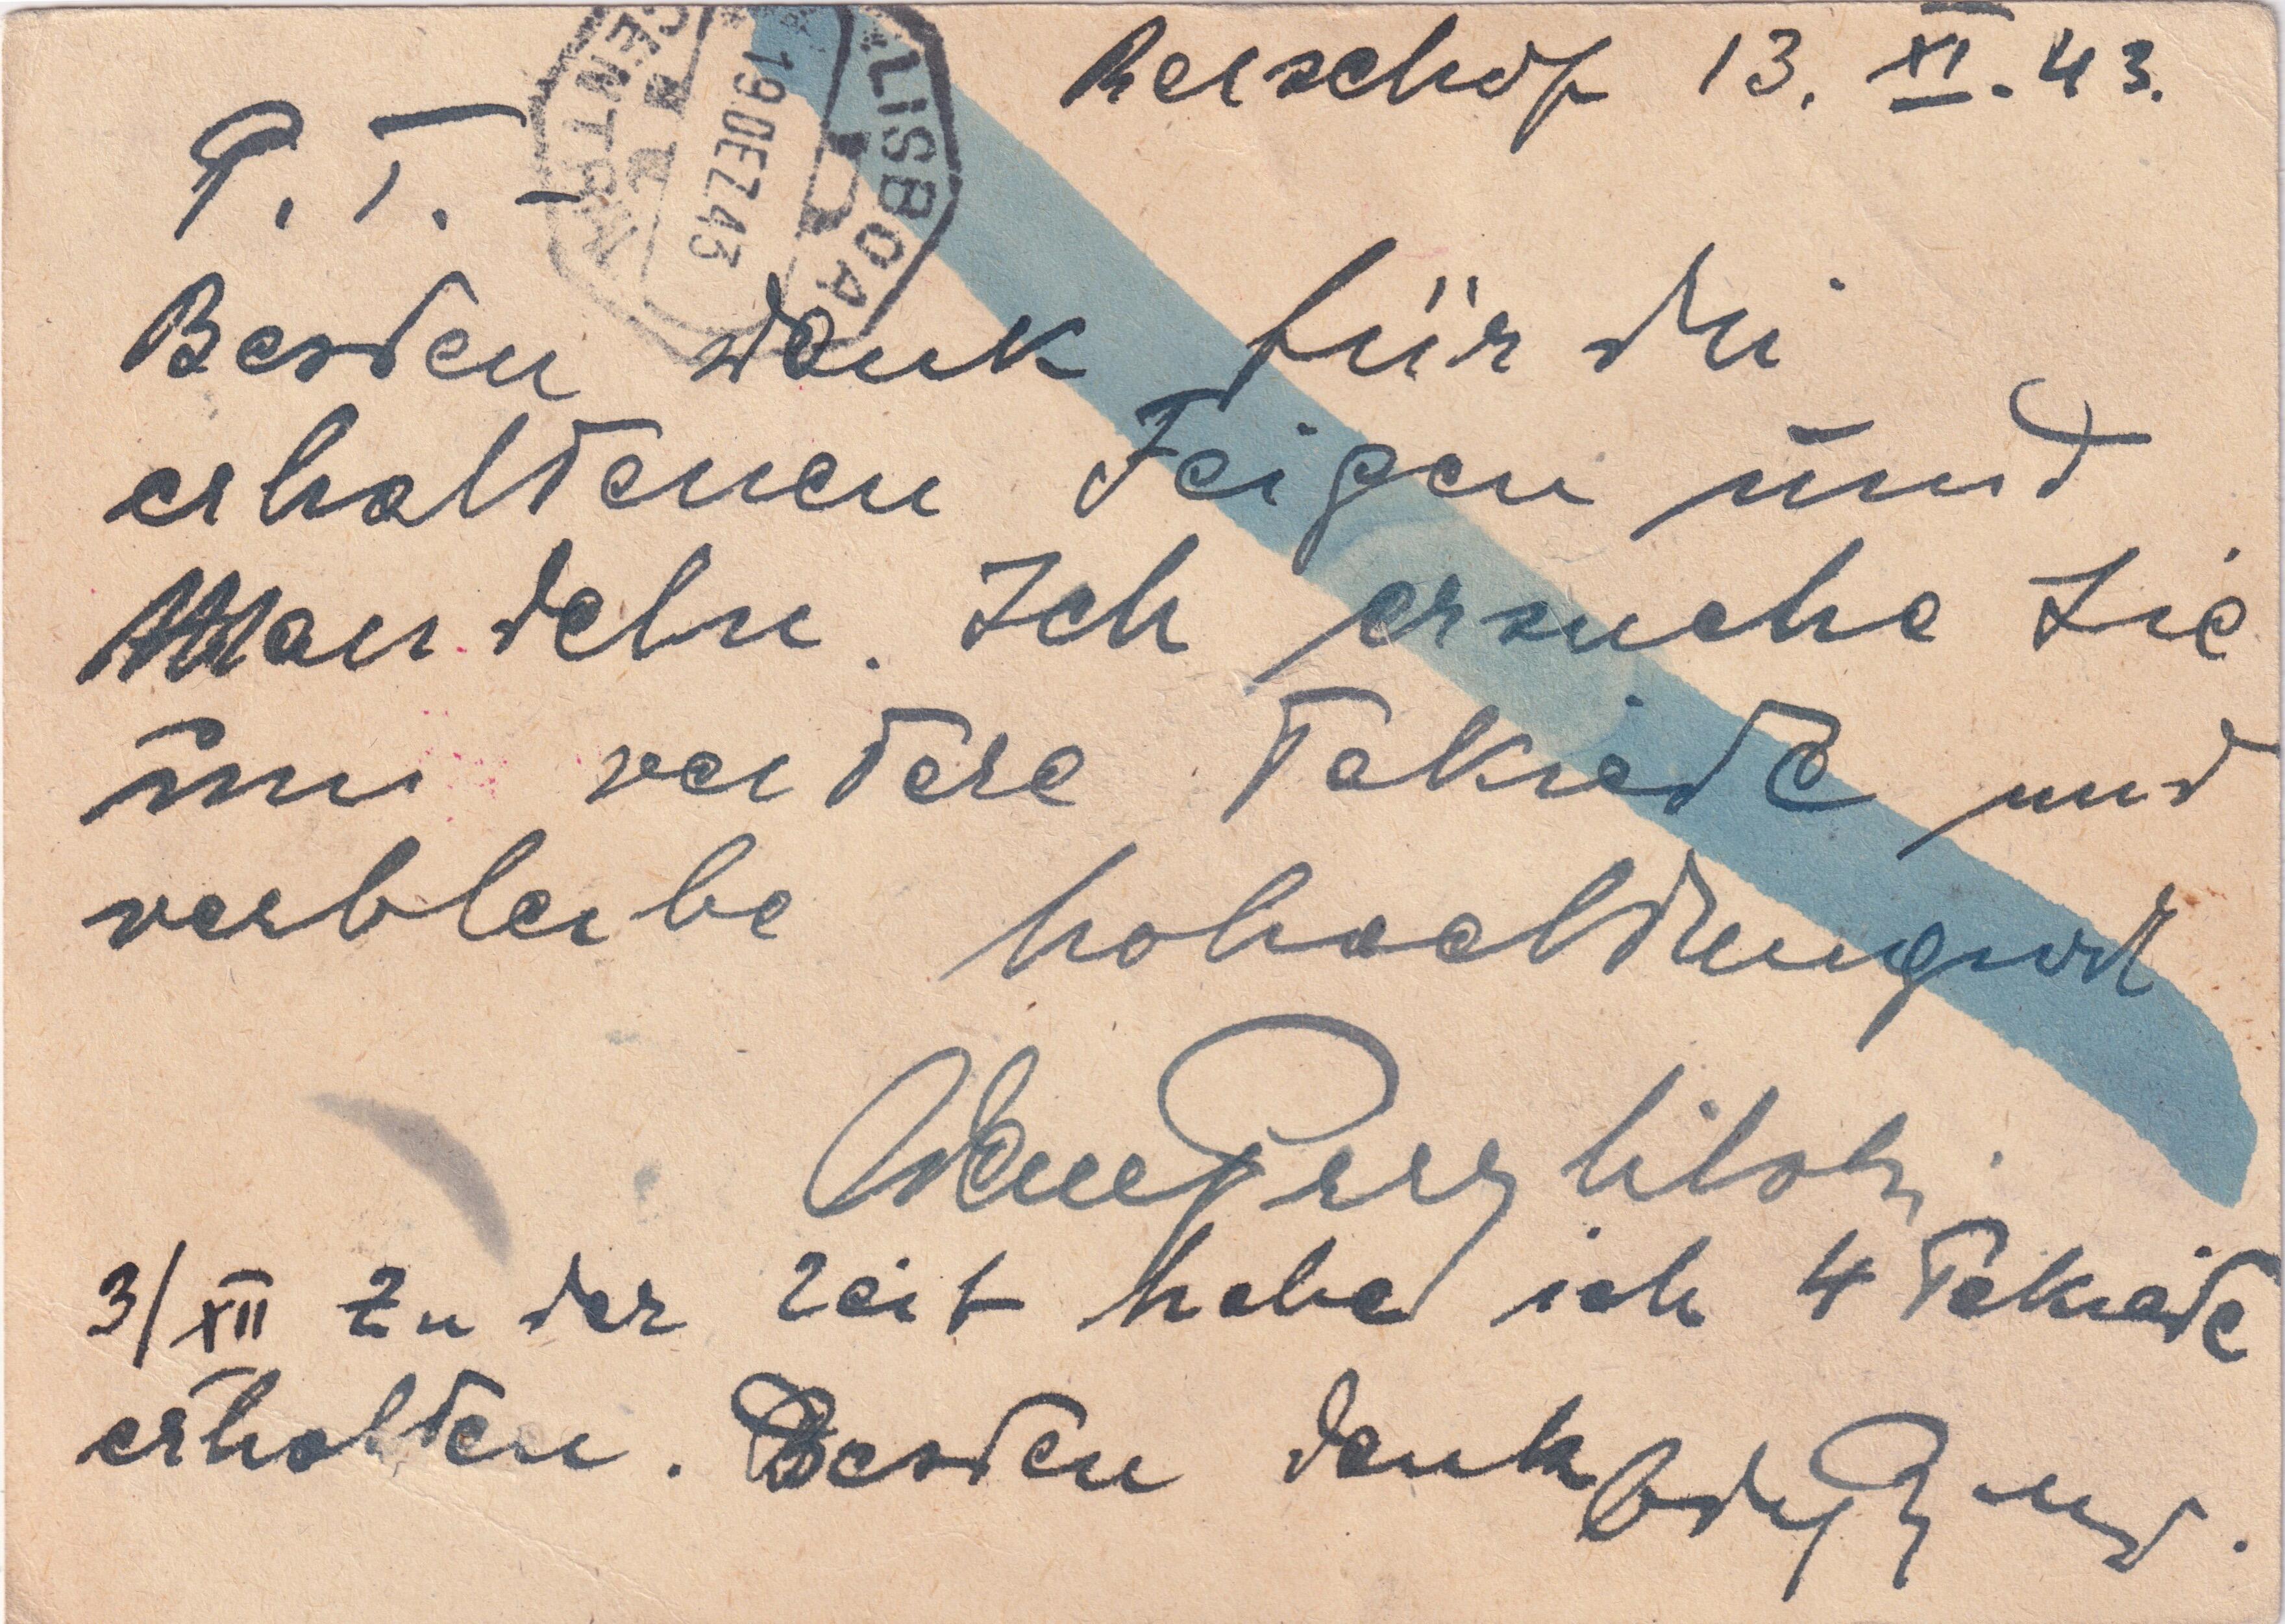 Reischof 13. XI. 43.
P. T. –
LISBOA
CENTRAL
19.DEZ.43
Besten dank für die
erhaltenen Feigen und
Mandeln. Ich ersuche Sie
um veitere Pakiete und
verbleibe hohachtungvol
3/XII Zu der Zeit habe ich 4 Pakiete
erhalten. Besten dank